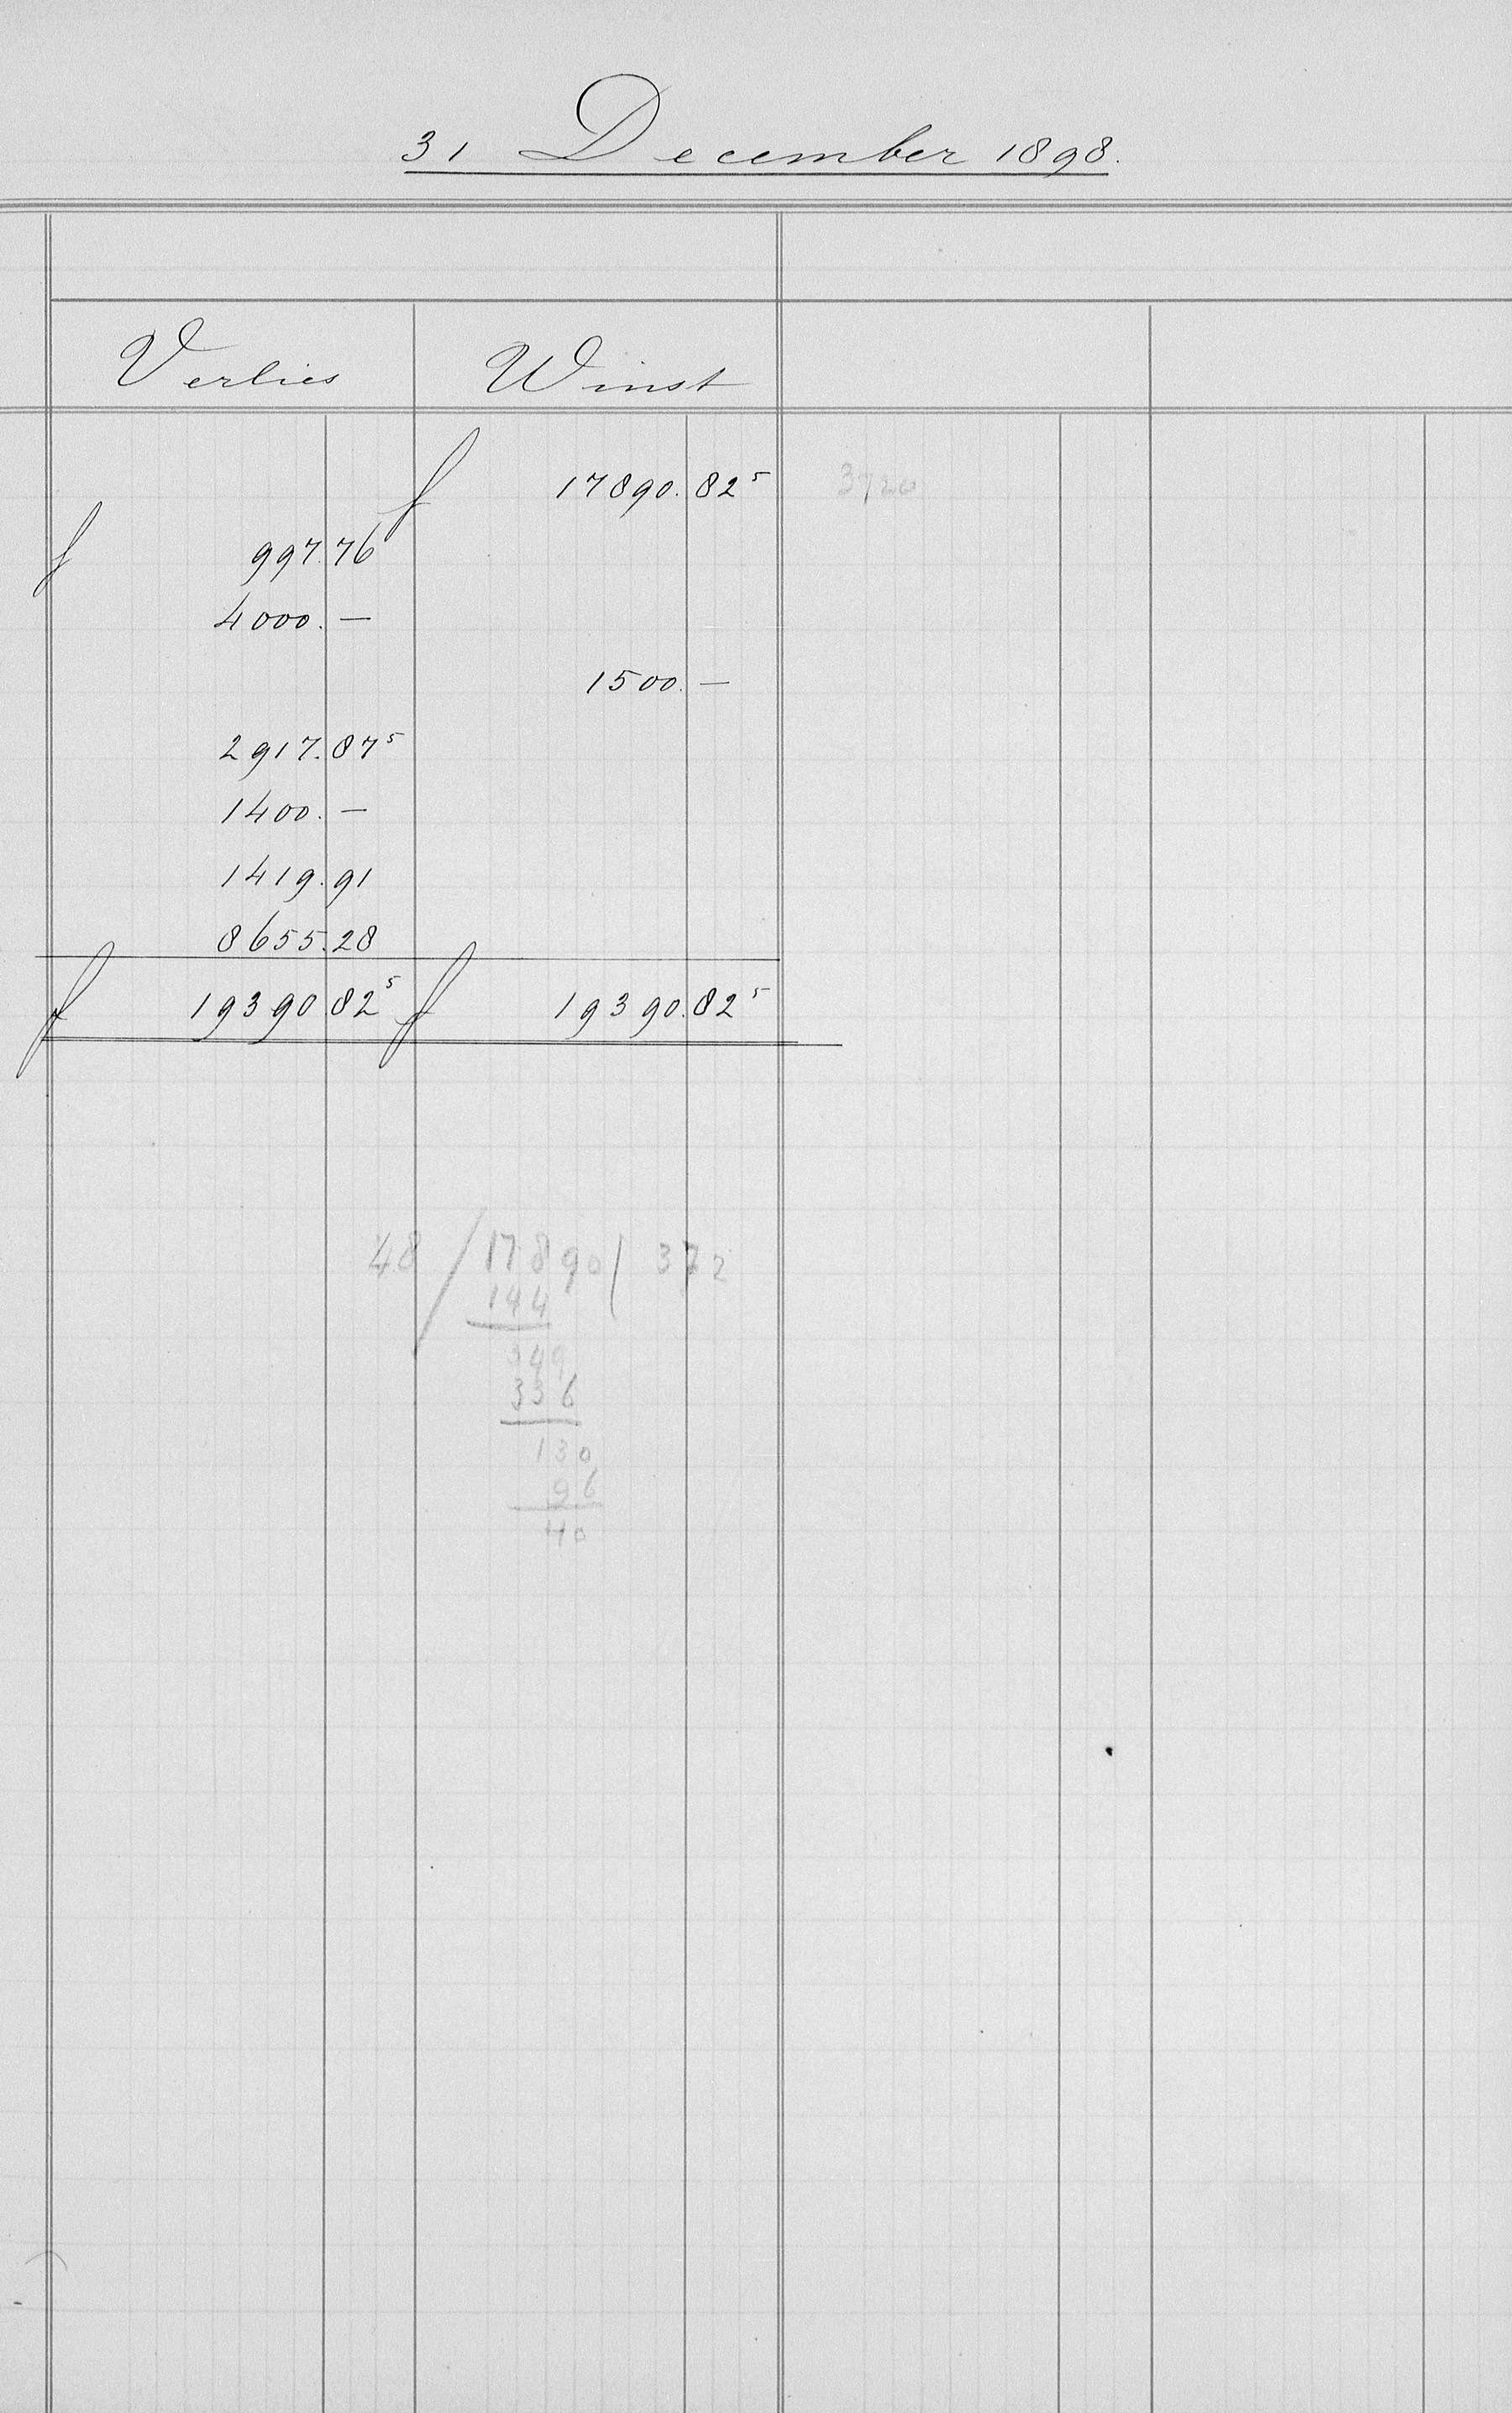 31 December 1898.
Verlies Winst
f 17890.82⁵ 3720
f 997.76
4000.—
1500.—
2917.87⁵
1400.—
1419.91
8655.28
f 19390 82⁵ f 19390.82⁵
48 / 17890 / 372
144
349
336
130
96
40